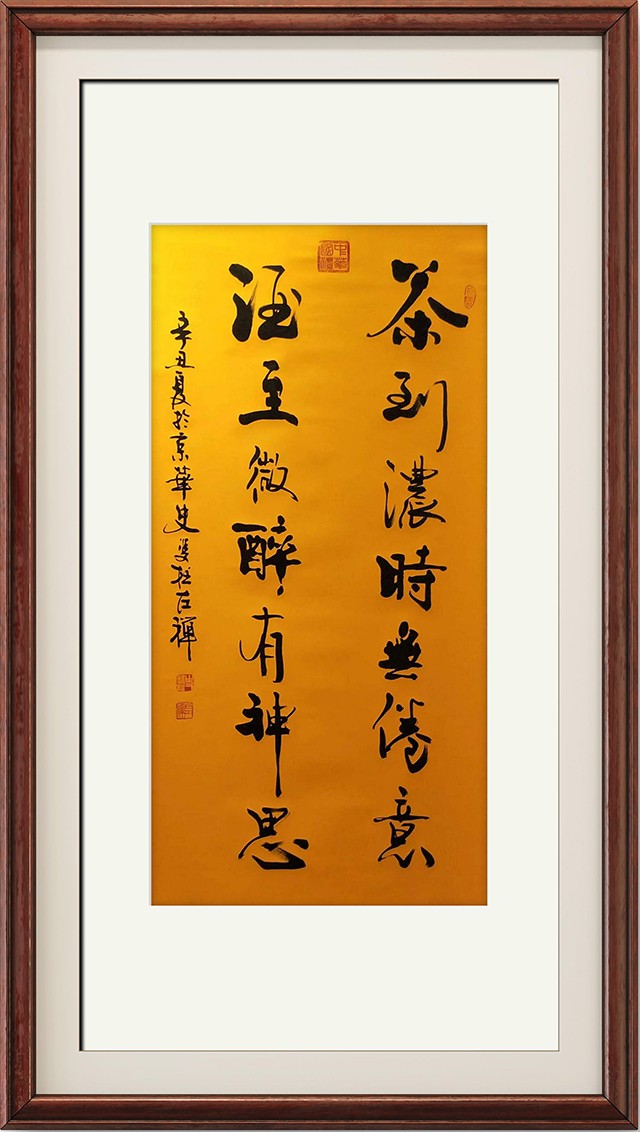 茶到濃時無倦意
酒至微醉有神思
辛丑夏於京華史